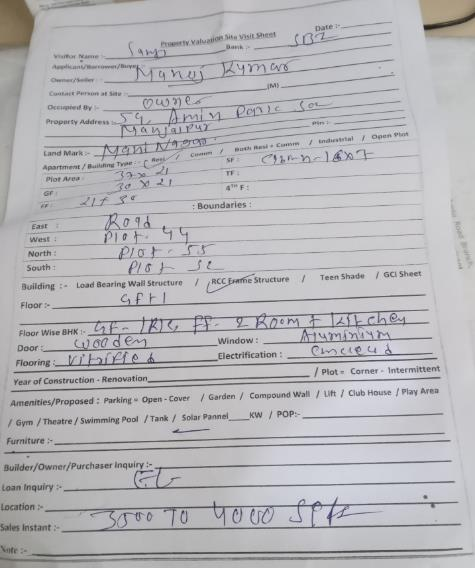 Property Valuation Site Visit Sheet
Date :-
Visitor Name :- Sanjy Bank :- SBI
Applicant/Borrower/Buyer Manuj Kumar
Owner/Seller :-
Contact Person at Site :- (M)
Occupied By :- owner
Property Address :- 54, Amin Parc Soc
Manjalpur Pin :-
Land Mark :- Mani Nagar
Apartment / Building Type :- Resi / Comm / Both Resi + Comm / Industrial / Open Plot
Plot Area : 37 x 21 SF :
GF : 30 x 21 TF :
FF : 21 + 30 4TH F :
: Boundaries :
East : Road
West : Plot - 44
North : Plot - 55
South : Plot 52
Building :- Load Bearing Wall Structure / RCC Frame Structure / Teen Shade / GCI Sheet
Floor :- GF+1
Floor Wise BHK :- GF - 1RK, FF - 2 Room + Kitchen
Door : wooden Window : Aluminium
Flooring : Vitrified Electrification :
Year of Construction - Renovation / Plot = Corner - Intermittent
Amenities/Proposed : Parking = Open - Cover / Garden / Compound Wall / Lift / Club House / Play Area
/ Gym / Theatre / Swimming Pool / Tank / Solar Pannel KW / POP:-
Furniture :-
Builder/Owner/Purchaser Inquiry :-
Loan Inquiry :-
Location :-
Sales Instant :- 3500 To 4000 Sft
Note :-